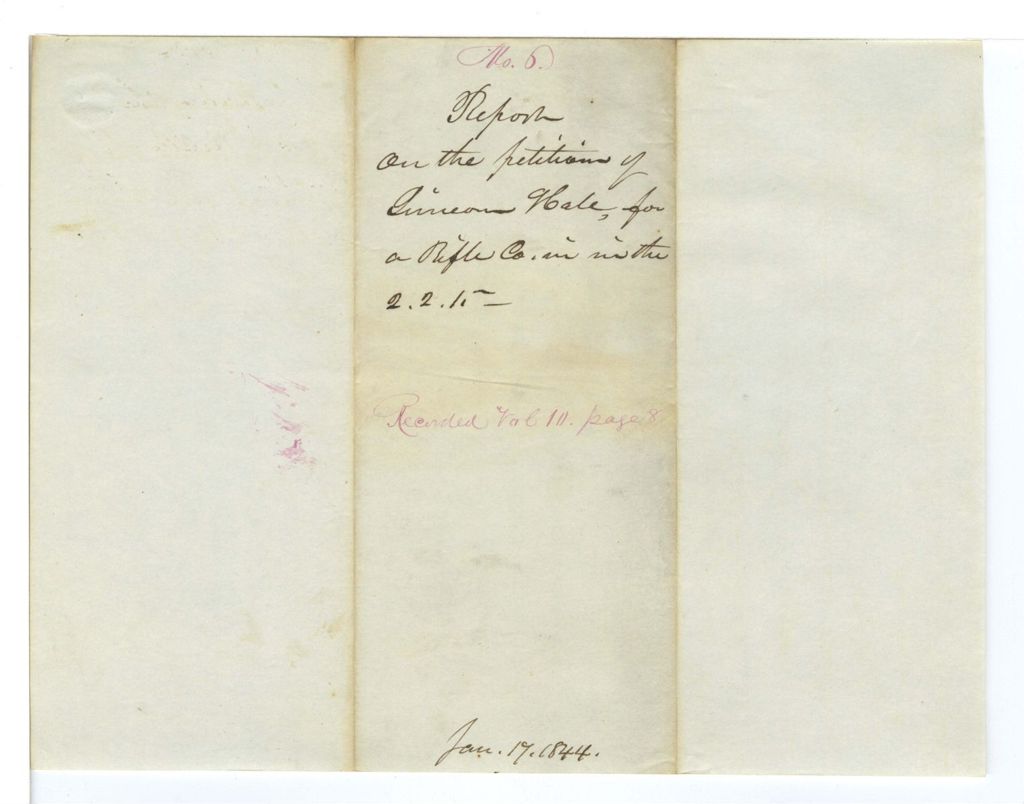 No. 6.
Report
on the petition of
Simeon Hale, for
a Rifle Co. in in the
2. 2. 1.
Recorded Vol 10. page 8
Jan. 17. 1844.